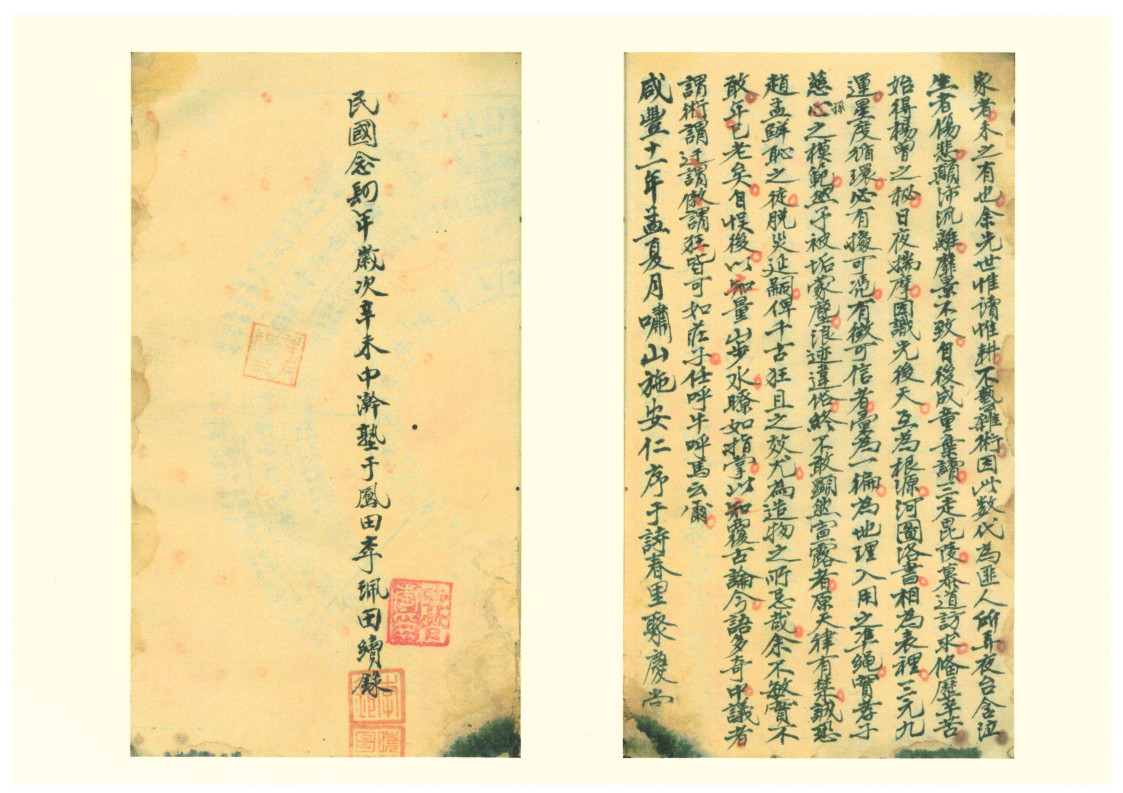 家者未之有也余先世惟讀惟耕不藝雜術因此數代為匪人所弄夜台含泣
生者傷悲顛沛流離靡景不致自後成童棄讀三走毘陵慕道訪求備歷辛苦
始得楊曾之秘日夜揣摩因識先後天互為根源河圖洛書相為表裡三元九
運星度循環必有據可憑有徵可信者彙為一編為地理入用之準繩實孝子
慈孫心之模範然予被垢蒙塵浪迹違俗終不敢顯然宣露者原天律有禁誠恐
趙孟鮮恥之徒脱災延嗣俾千古狂且之效尤為造物之所忌哉余不敏實不
敢年已老矣自悮後以知量山步水瞭如指掌以和覆古論今語多奇中議者
謂術謂迂謂傲謂狂皆可如莊子任呼牛呼馬云爾
咸豐十一年孟夏月嘯山施安仁序于詩春里聚慶堂
民國念年歲次辛未中澣塾于鳳田李珮田續錄